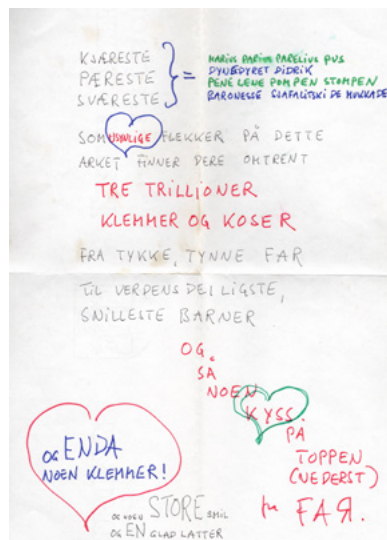 KJÆRESTE
PÆRESTE
SVÆRESTE
=
MARIUS PARIUS PARELIUS PUS
DYNEDYRET DIDRIK
PENE LENE POMPEN STOMPEN
BARONESSE
SOM USYNLIGE FLEKKER PÅ DETTE
ARKET FINNER DERE OMTRENT
TRE TRILLIONER
KLEMMER OG KOSER
FRA TYKKE, TYNNE FAR
TIL VERDENS DEILIGSTE,
SNILLESTE BARNER
OG.
SÅ
NOEN
KYSS.
PÅ
TOPPEN
(NEDERST)
fra FAR.
OG ENDA
NOEN KLEMMER!
OG NOEN STORE SMIL
OG EN GLAD LATTER